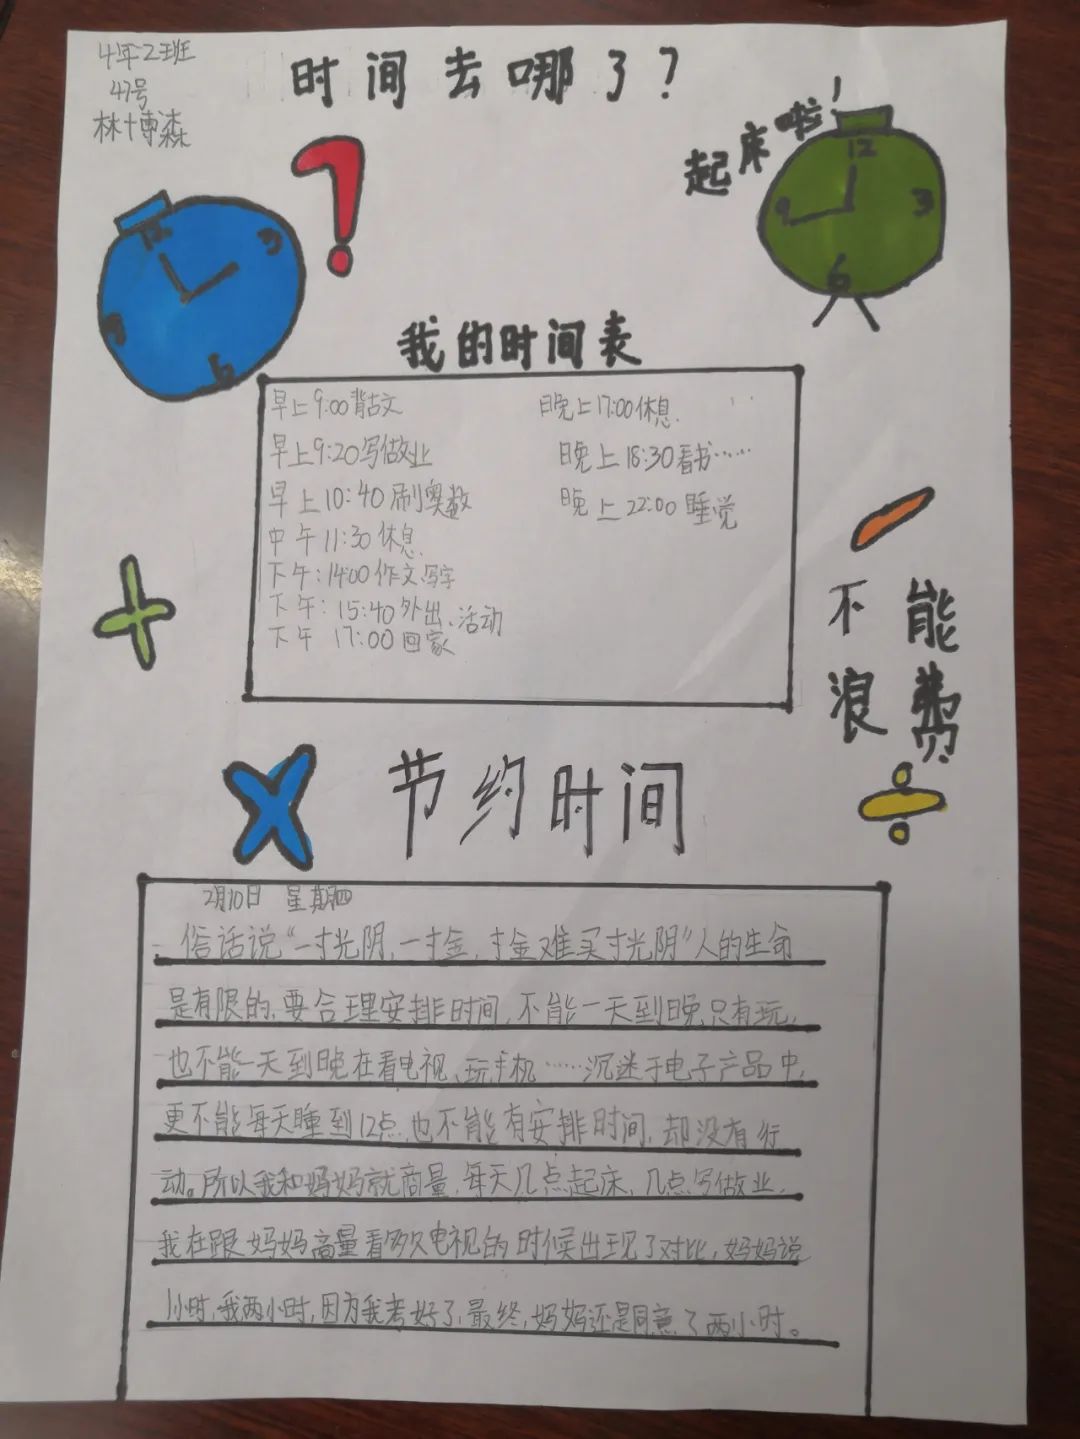 4年2班
47号
林博森
时间去哪了？
起床啦！
12
3
6
9
12
3
6
9
我的时间表
早上9:00背古文
早上9:20写做业
早上10:40刷奥数
中午11:30休息
下午:14:00作文、写字
下午:15:40外出、活动
下午 17:00回家
晚上17:00休息.
晚上18:30看书……
晚上22:00睡觉
不能
浪费
节约时间
2月10日 星期四
俗话说“一寸光阴,一寸金,寸金难买寸光阴”人的生命
是有限的,要合理安排时间,不能一天到晚只有玩,
也不能一天到晚在看电视、玩手机……沉迷于电子产品中,
更不能每天睡到12点,也不能有安排时间,却没有行
动。所以我和妈妈就商量,每天几点起床,几点写做业,
我在跟妈妈商量看多久电视的时候出现了对比,妈妈说
1小时,我两小时,因为我考好了,最终,妈妈还是同意了两小时。